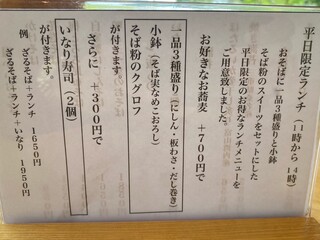 平日限定ランチ（11時から14時）
おそばに一品３種盛りと小鉢
そば粉のスイーツをセットにした
平日限定のお得なランチメニューを
ご用意致しました。
お好きなお蕎麦　＋700円で
一品３種盛り（にしん・板わさ・だし巻き）
小鉢（そば実なめこおろし）
そば粉のクグロフ
が付きます。
さらに　＋300円で
いなり寿司（２個）
が付きます。
例　ざるそば＋ランチ　1650円
ざるそば＋ランチ＋いなり　1950円